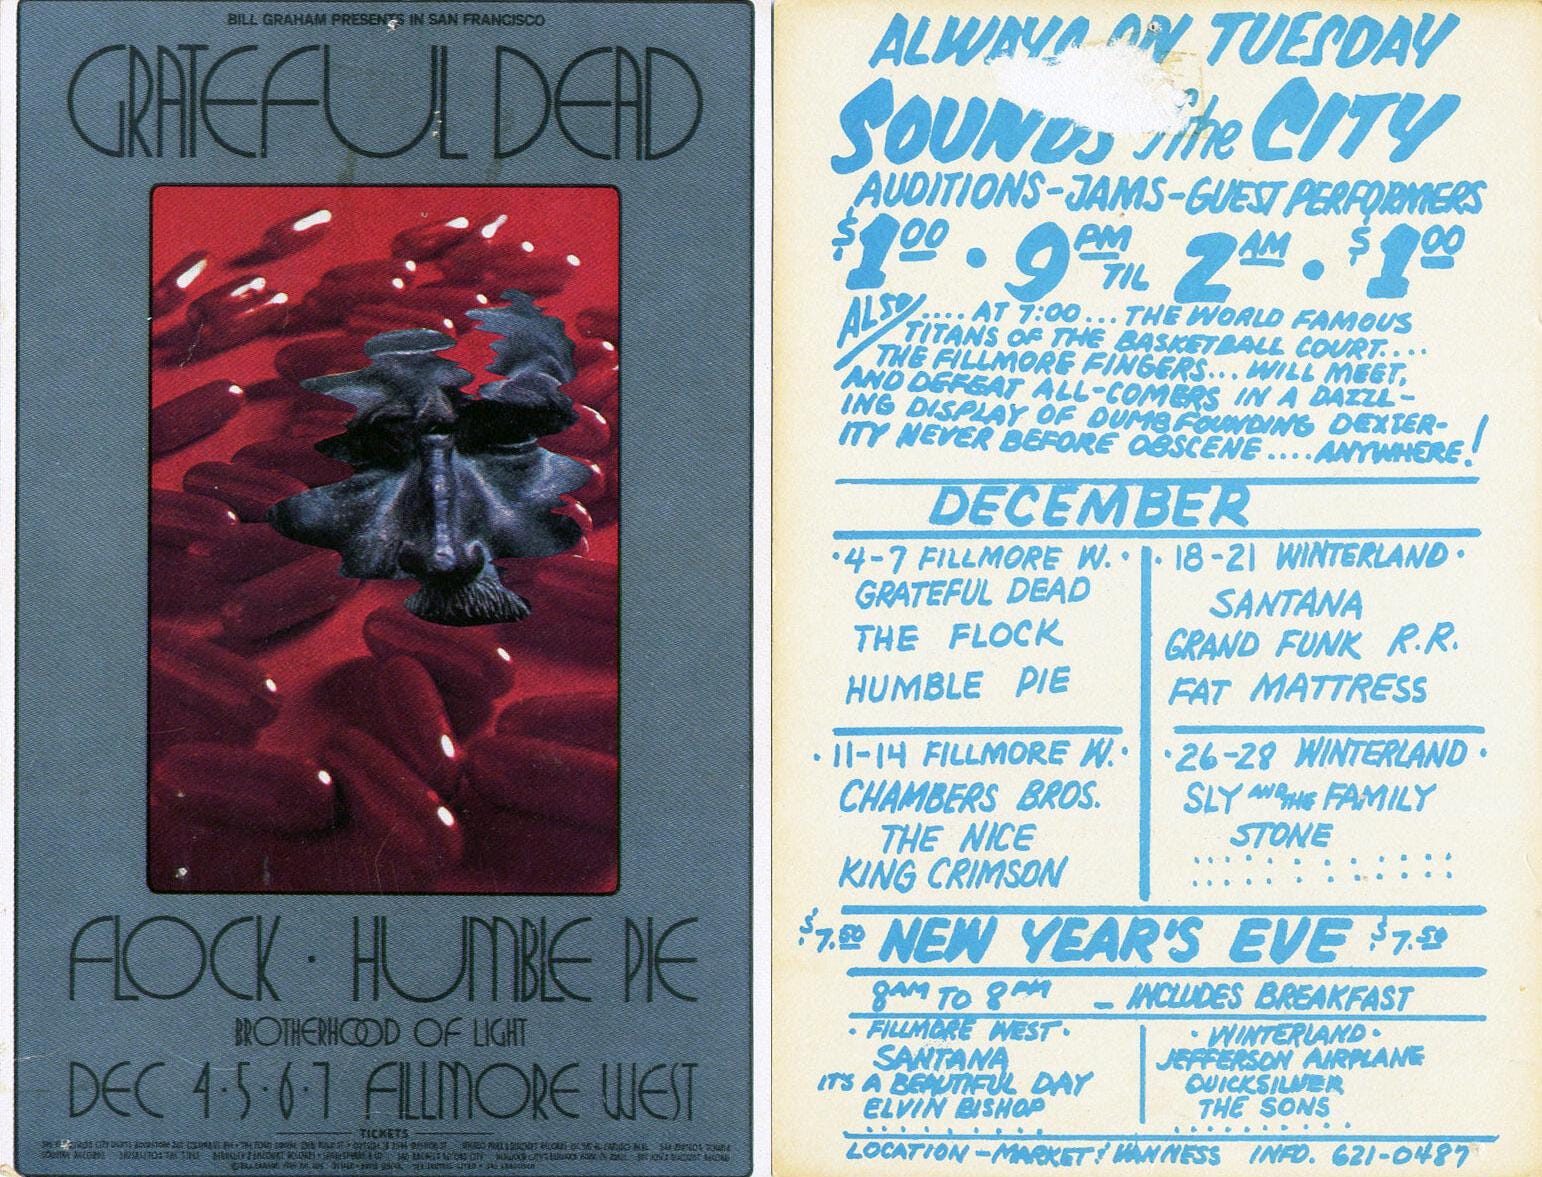 BILL GRAHAM PRESENTS IN SAN FRANCISCO
GRATEFUL DEAD
FLOCK · HUMBLE PIE
BROTHERHOOD OF LIGHT
DEC 4·5·6·7 FILLMORE WEST
TICKETS
ALWAYS ON TUESDAY
SOUNDS of the CITY
AUDITIONS-JAMS-GUEST PERFORMERS
$1.00 · 9 PM TIL 2 AM · $1.00
ALSO/.... AT 7:00... THE WORLD FAMOUS
TITANS OF THE BASKETBALL COURT....
THE FILLMORE FINGERS... WILL MEET,
AND DEFEAT ALL-COMERS IN A DAZZL-
ING DISPLAY OF DUMBFOUNDING DEXTER-
ITY NEVER BEFORE OBSCENE....ANYWHERE!
DECEMBER
·4-7 FILLMORE W.·
GRATEFUL DEAD
THE FLOCK
HUMBLE PIE
·11-14 FILLMORE W.·
CHAMBERS BROS.
THE NICE
KING CRIMSON
·18-21 WINTERLAND·
SANTANA
GRAND FUNK R.R.
FAT MATTRESS
·26-28 WINTERLAND·
SLY AND THE FAMILY
STONE
$7.50 NEW YEAR'S EVE $7.50
8AM TO 8PM - INCLUDES BREAKFAST
·FILLMORE WEST·
SANTANA
IT'S A BEAUTIFUL DAY
ELVIN BISHOP
·WINTERLAND·
JEFFERSON AIRPLANE
QUICKSILVER
THE SONS
LOCATION-MARKET/VAN NESS INFO. 621-0487